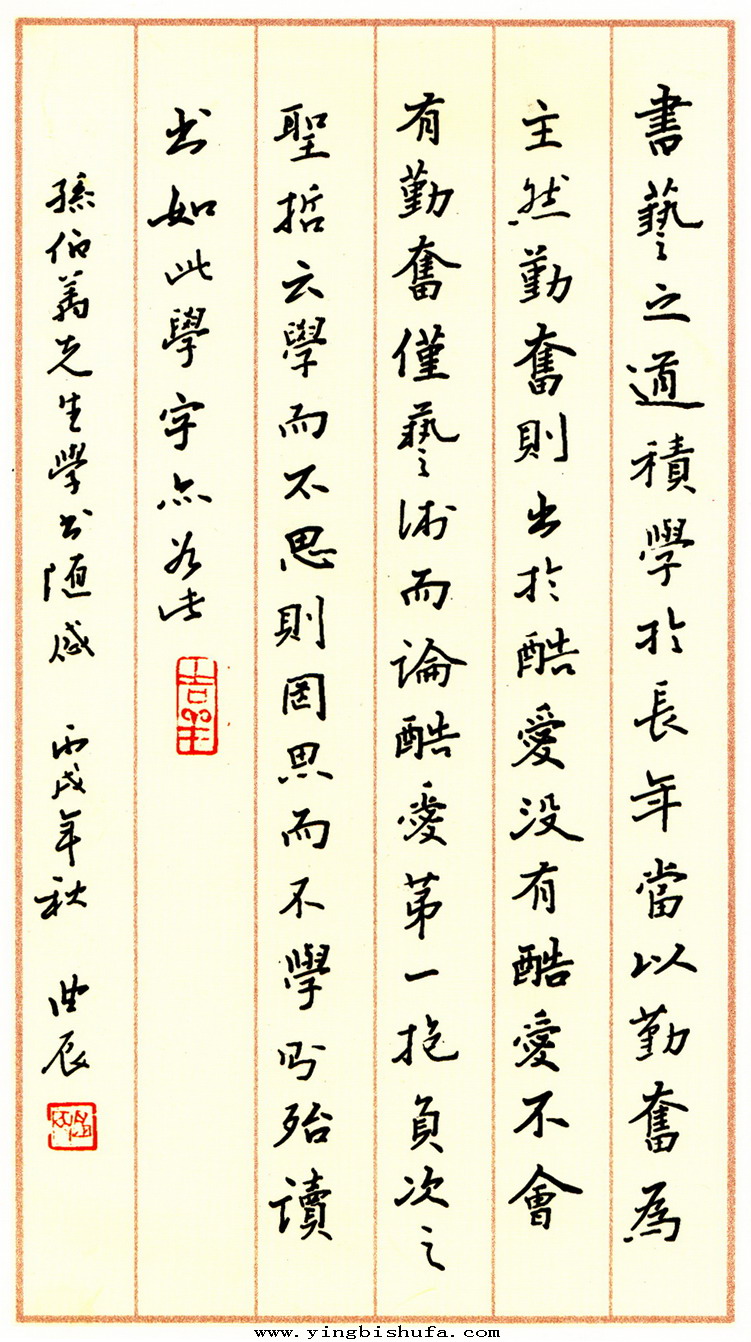 書藝之道積學於長年當以勤奮為
主然勤奮則出於酷愛没有酷愛不會
有勤奮僅藝術而論酷愛第一抱負次之
聖哲云學而不思則罔思而不學則殆讀
書如此學字亦若此
孫伯翥先生學書随感 丙戌年秋 曲辰
www.yingbishufa.com